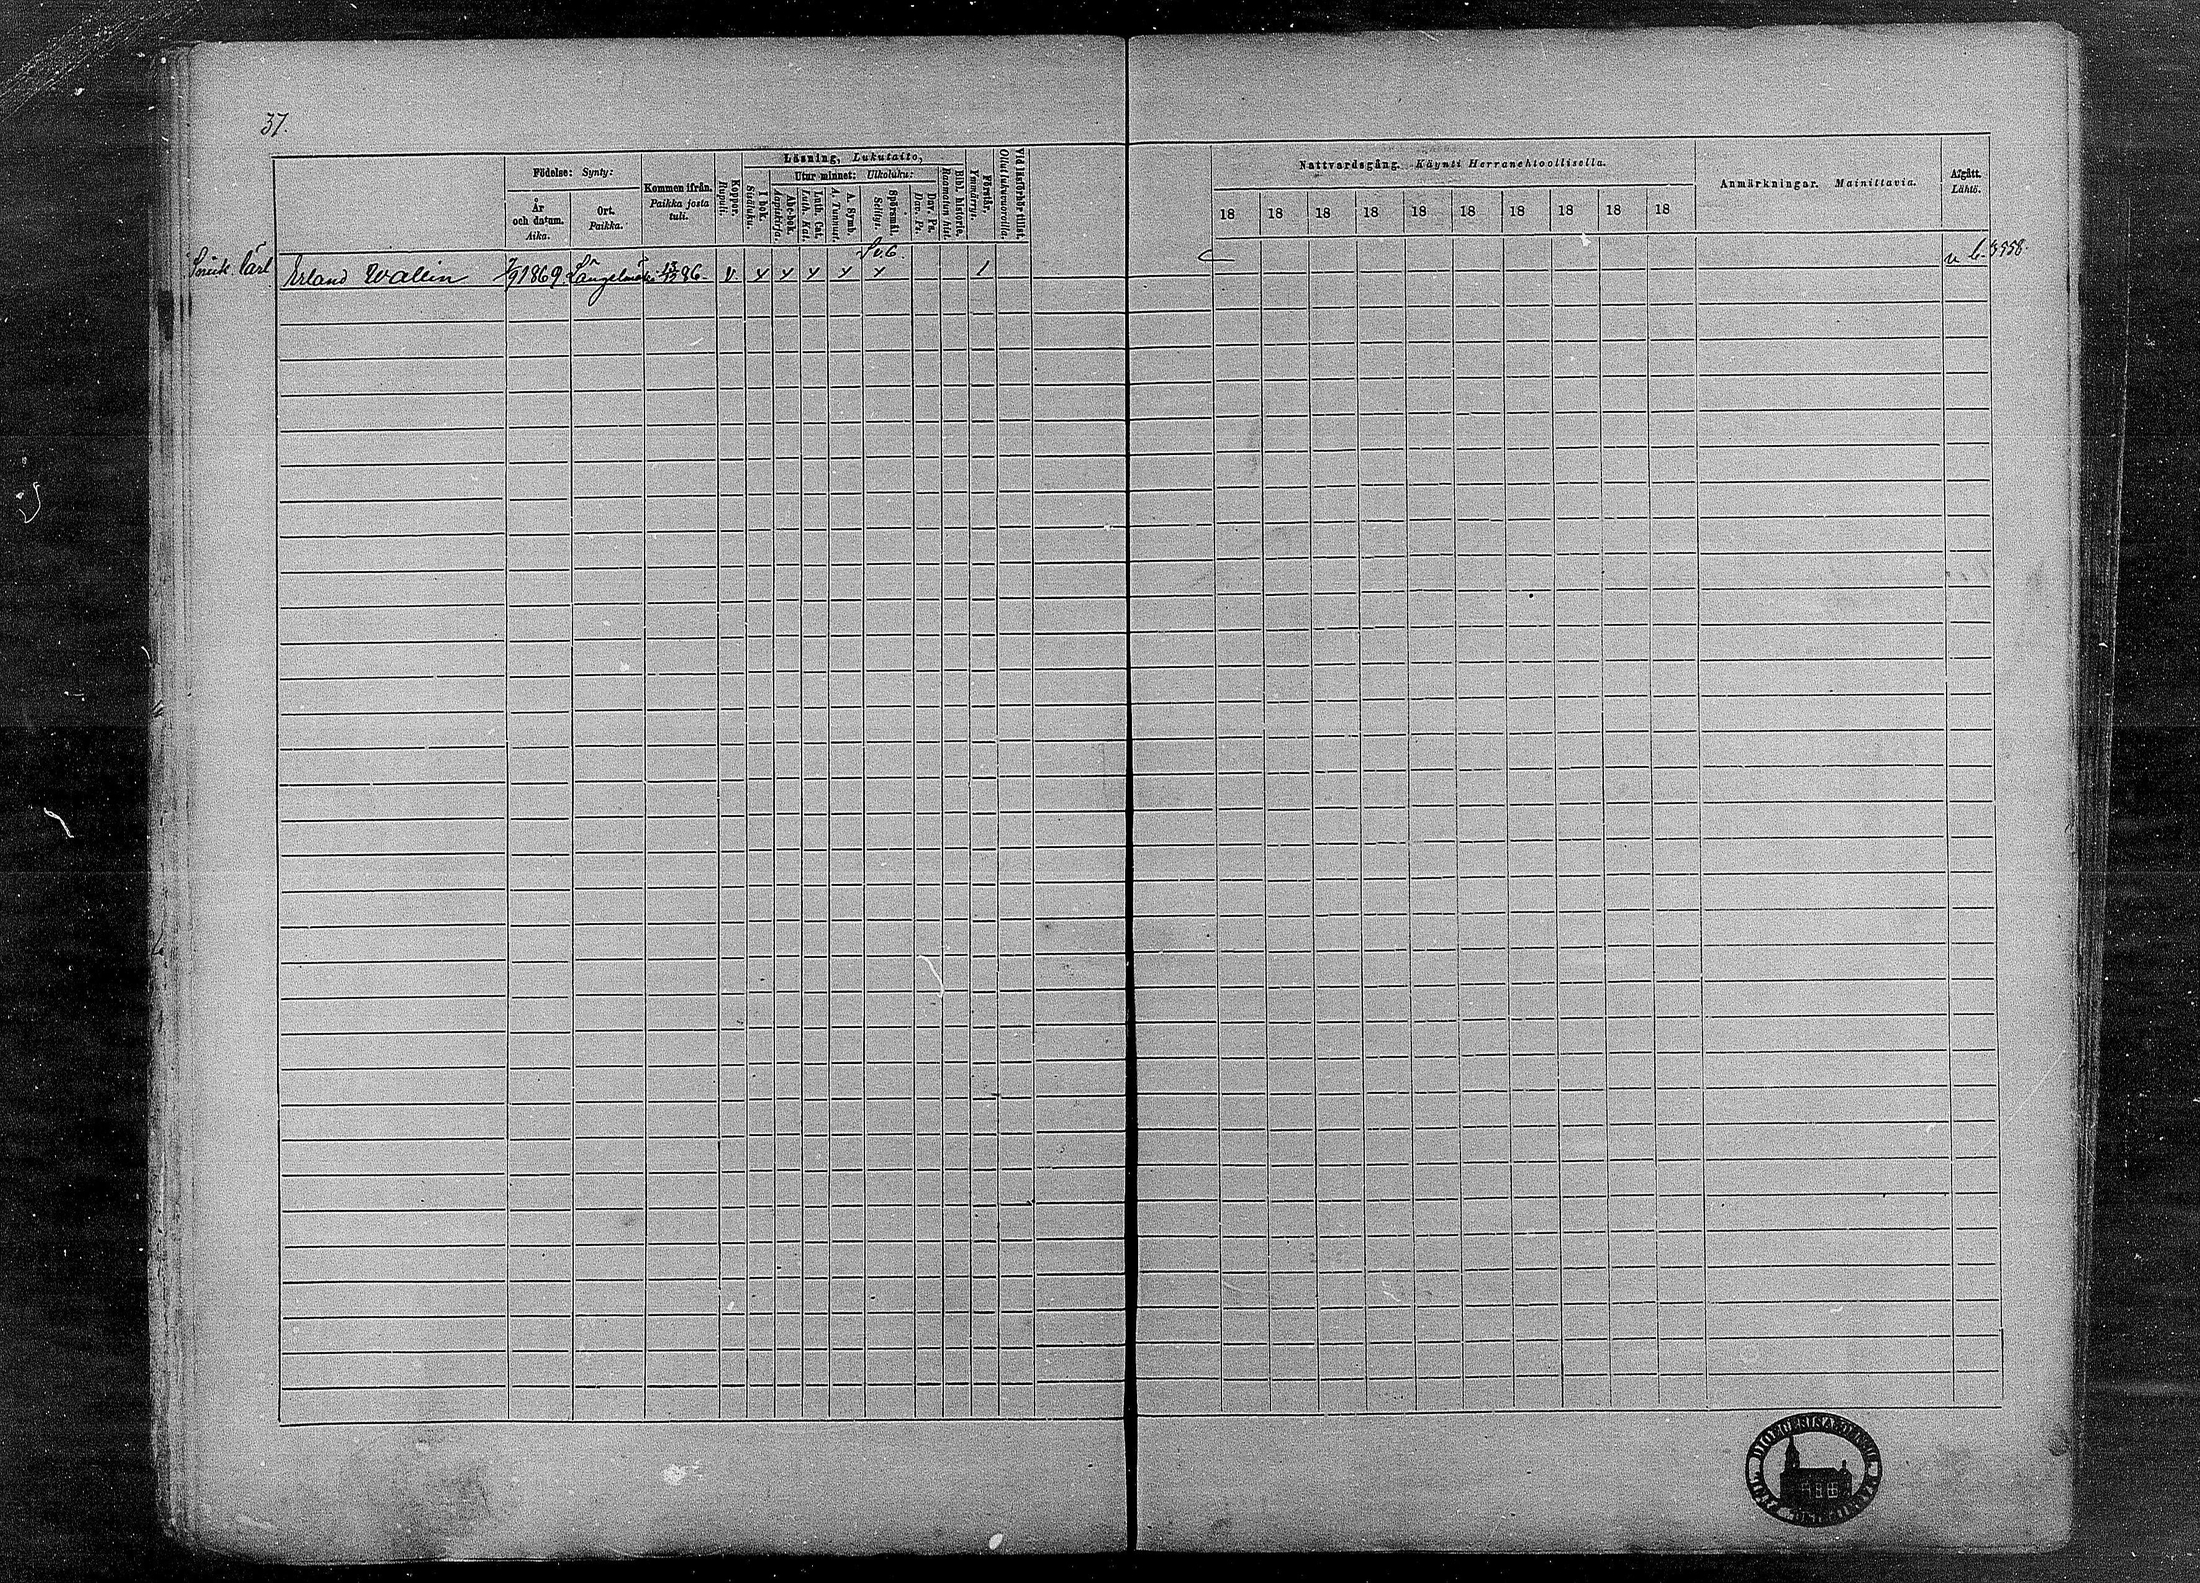 37.
Födelse: Synty:
År och datum. Aika.
Ort. Paikka.
Kommen ifrån. Paikka josta tuli.
Koppor. Rupuli.
Läsning, Lukutaito,
I bok. Sisäluku.
Utur minnet: Ulkoluku:
Abc-bok. Aapiskirja.
Luth. Cat. Luth. Kat.
A. Symb. A. Tunnust.
Spörsmål. Selitys.
Dav. Ps. Dav. Ps.
Bibl. historie. Raamatun hist.
Förstår, Ymmärrys.
Vid läsförhör tillst. Ollut lukuvuorolla.
Nattvardsgång. Käynti Herranehtoollisella.
18 18 18 18 18 18 18 18 18 18
Anmärkningar. Mainittavia.
Afgått. Lähtö.
Sv. 6.
Carl Erland Wallin 1869. Längelmäki 86. v. x x x x x 1